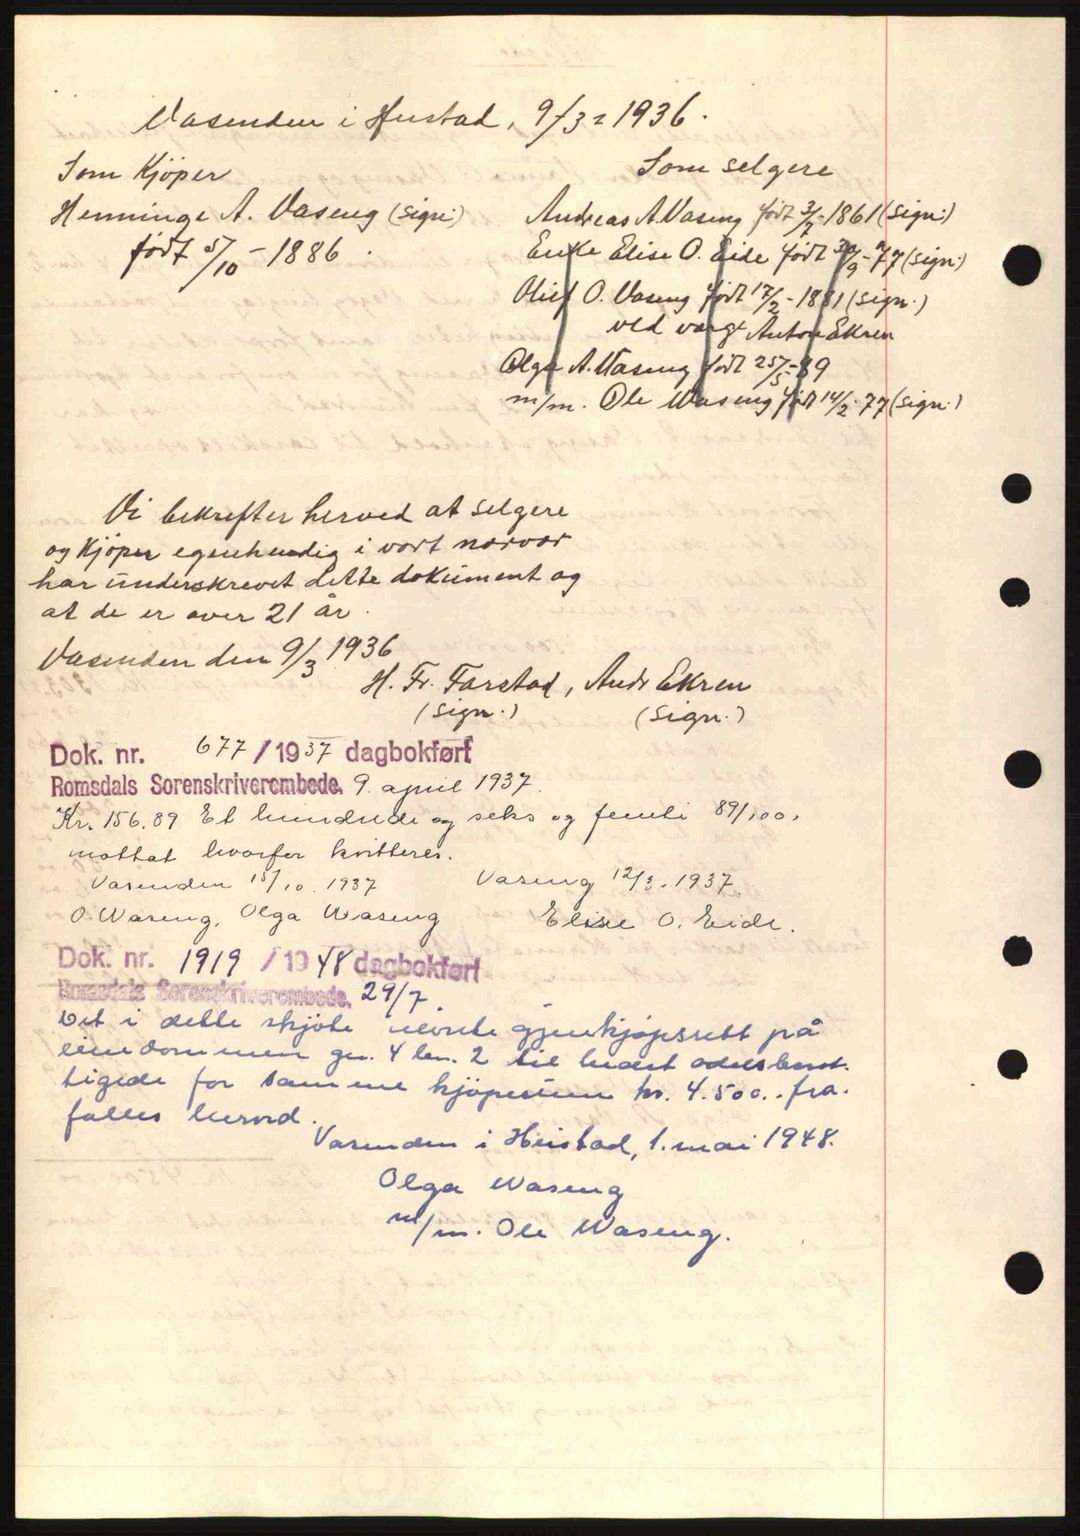 Vasenden i Hustad, 9/3 = 1936.
Som Kjøper
Henninge A. Vaseng (sign:)
født 5/10 - 1886.
Som selgere
Andreas A. Vaseng født 3/7 - 1861 (sign:)
Enke Elise O. Eide født 30/9 - 77 (sign:)
Oluf O. Vaseng født 17/2 - 1881 (sign.)
ved verge Anton Ekren
Olga A. Waseng født 25/5 - 89
m/m. Ole Waseng født 14/2 - 77 (sign:)
Vi bekrefter herved at selgere
og Kjøper egenhendig i vort nærvær
har underskrevet dette dokument og
at de er over 21 år.
Vasenden den 9/3 1936
H. Fr. Farstad, Andr Ekren
(sign.) (sign.)
Dok. nr. 677 / 1937 dagbokført
Romsdals Sorenskriverembede. 9. april 1937.
Kr. 156.89 Et hundrede og seks og femti 89/100.
mottat hvorfor kvitteres.
Vasenden 15/10. 1937
O. Waseng, Olga Waseng
Vaseng 12/3. 1937.
Elise O. Eide.
Dok. nr. 1919 / 1948 dagbokført
Romsdals Sorenskriverembede. 29/7.
Det i dette skjøte nevnte gjenkjøpsrett på
eiendommen gn. 4 bn. 2 til bedst odelsberet-
tigede for samme kjøpesum kr. 4.500.. fra-
falles herved.
Vasenden i Hustad, 1. mai 1948.
Olga Waseng
m/m. Ole Waseng.